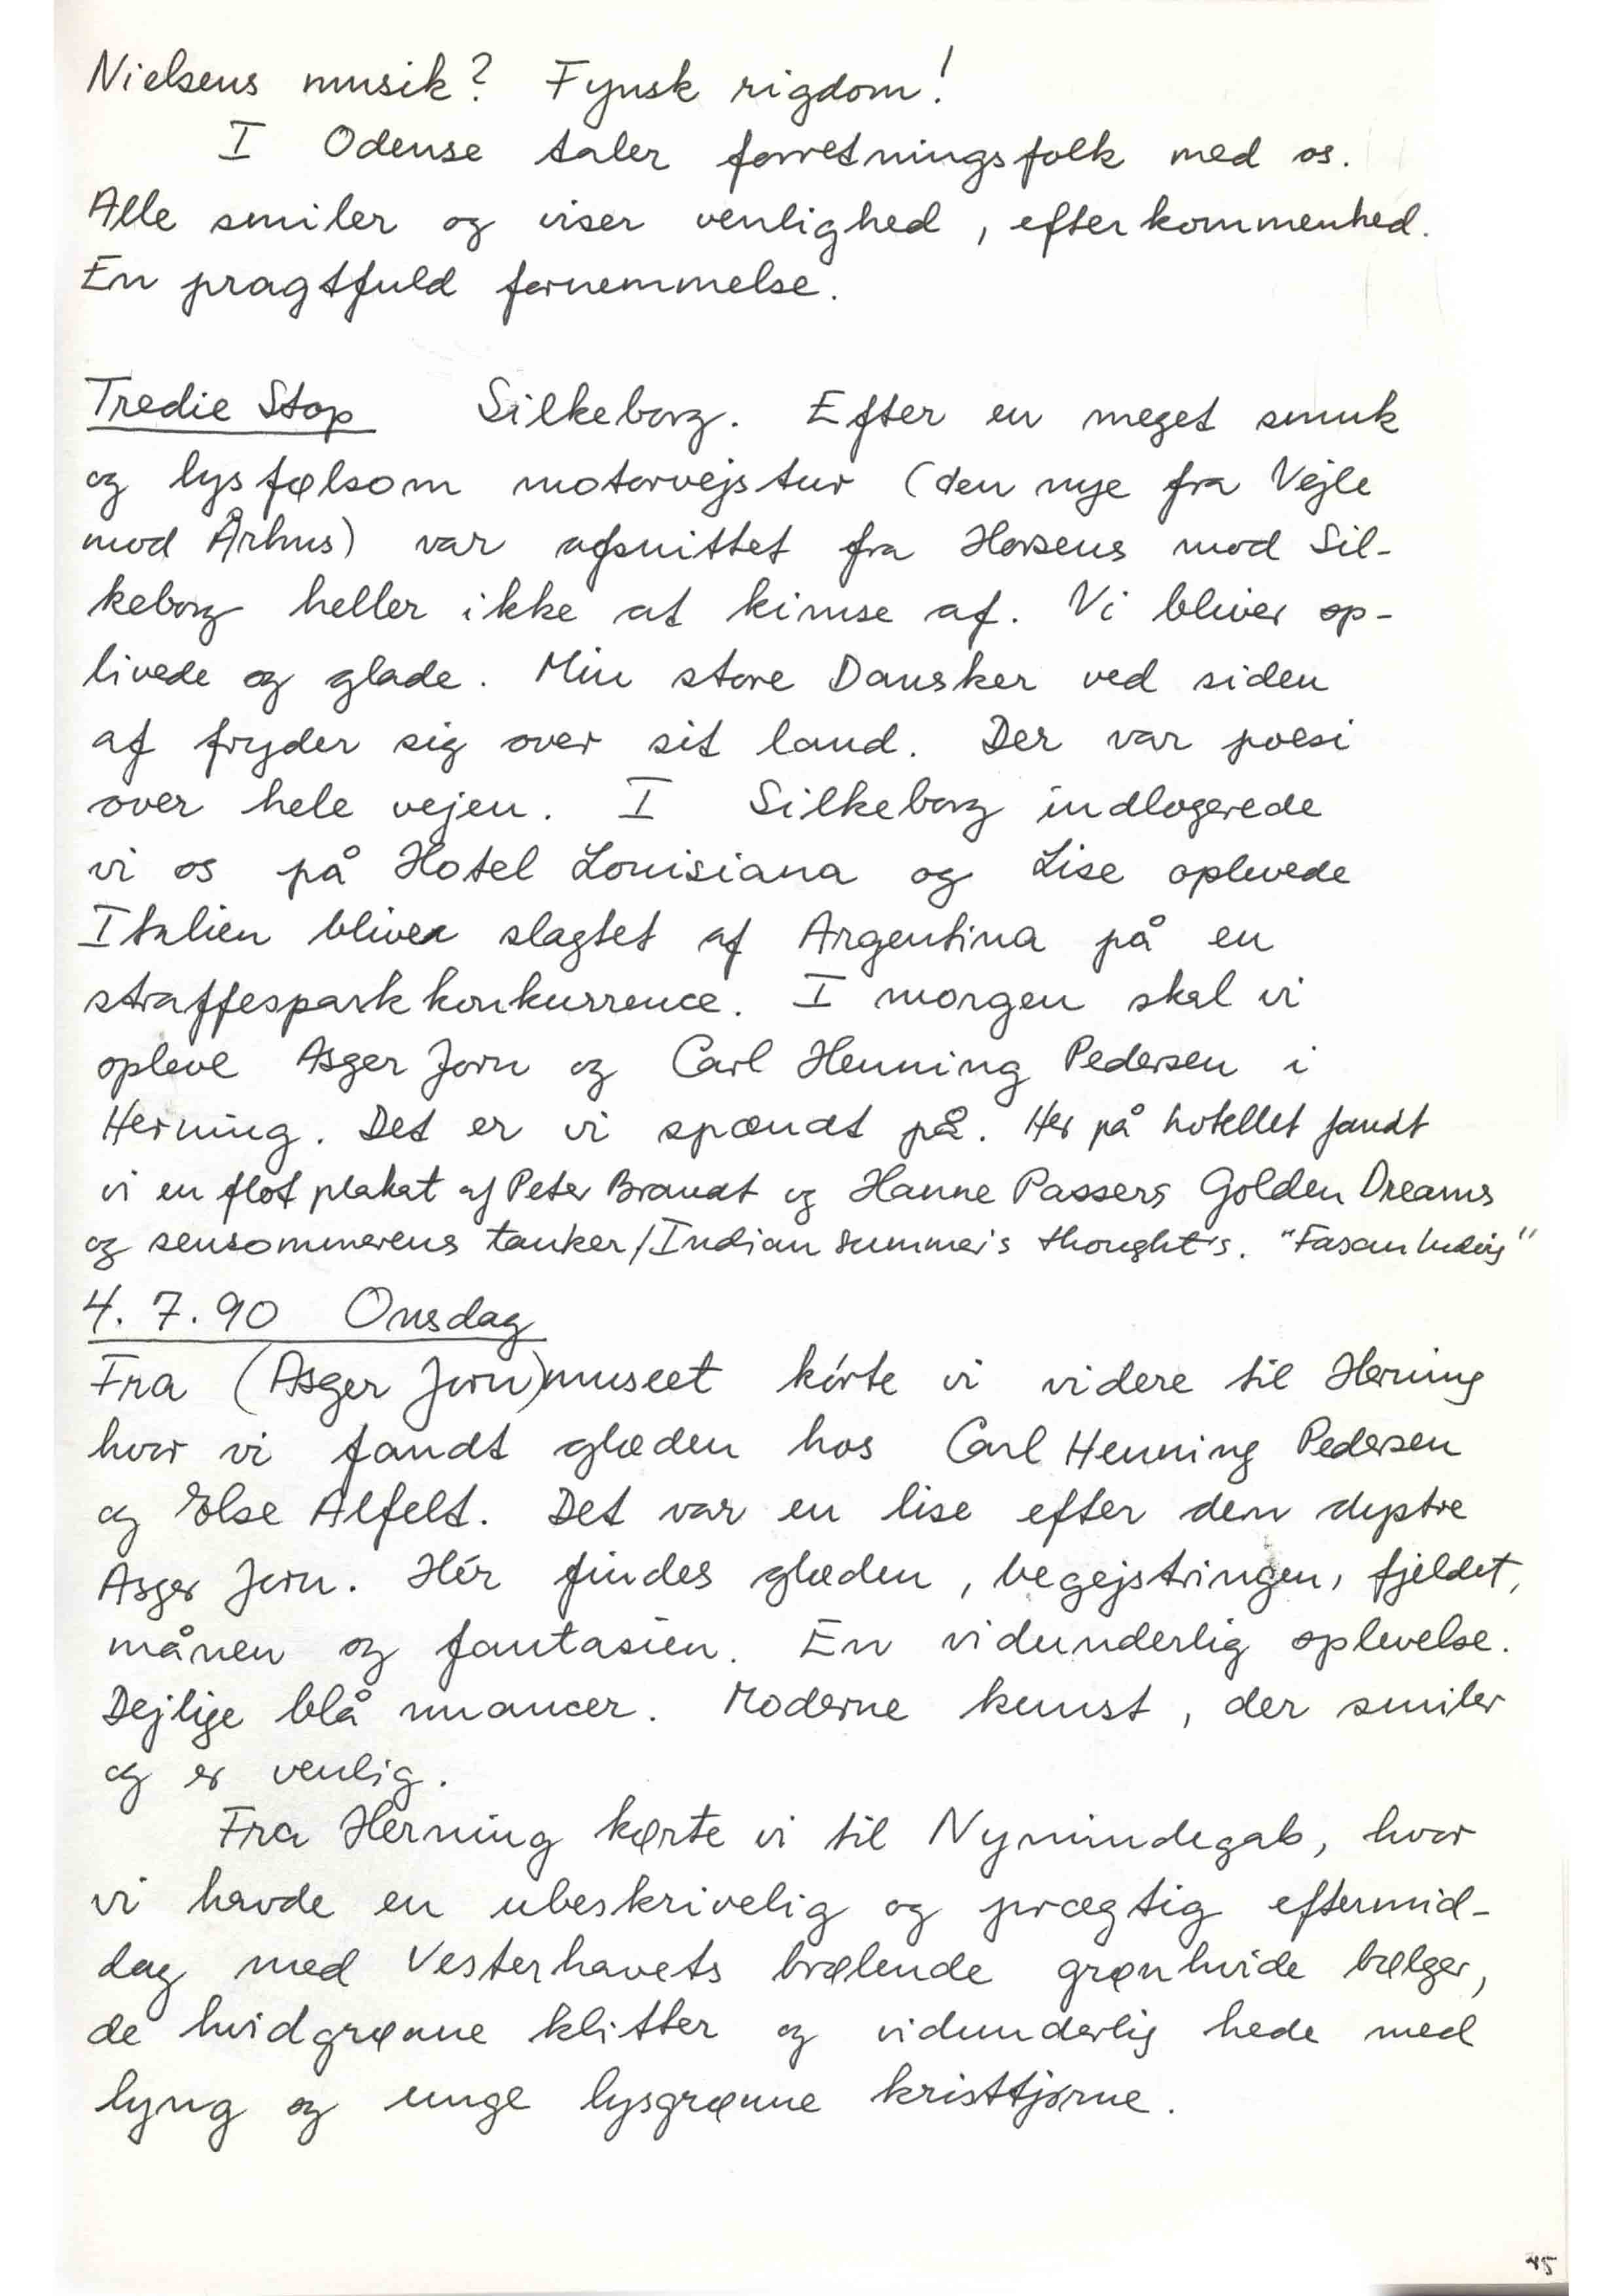 Nielsens musik? Fynsk rigdom!
I Odense taler forretningsfolk med os.
Alle smiler og viser venlighed, efterkommenhed.
En pragtfuld fornemmelse.
Tredie Stop Silkeborg. Efter en meget smuk
og lysfølsom motorvejstur (den nye fra Vejle
mod Århus) var afsnittet fra Horsens mod Sil-
keborg heller ikke at kimse af. Vi bliver op-
livede og glade. Min store Dansker ved siden
af fryder sig over sit land. Der var poesi
over hele vejen. I Silkeborg indlogerede
vi os på Hotel Louisiana og Lise oplevede
Italien bliver slagtet af Argentina på en
straffesparkkonkurrence. I morgen skal vi
opleve Asger Jorn og Carl Henning Pedersen i
Herning. Det er vi spændt på. Her på hotellet fandt
vi en flot plakat af Peter Brandt og Hanne Passers Golden Dreams
og sensommerens tanker/Indian summer's thought's. "Fasan
4.7.90 Onsdag
Fra (Asger Jorn)museet kørte vi videre til Herning
hvor vi fandt glæden hos Carl Henning Pedersen
og Else Alfelt. Det var en lise efter den dystre
Asger Jorn. Hér findes glæden, begejstringen, fjeldet,
månen og fantasien. En vidunderlig oplevelse.
Dejlige blå nuancer. Moderne kunst, der smiler
og er venlig.
Fra Herning kørte vi til Nymindegab, hvor
vi havde en ubeskrivelig og prægtig eftermid-
dag med Vesterhavets brølende grønhvide bølger,
de hvidgrønne klitter og vidunderlig hede med
lyng og unge lysgrønne kristtjørne.